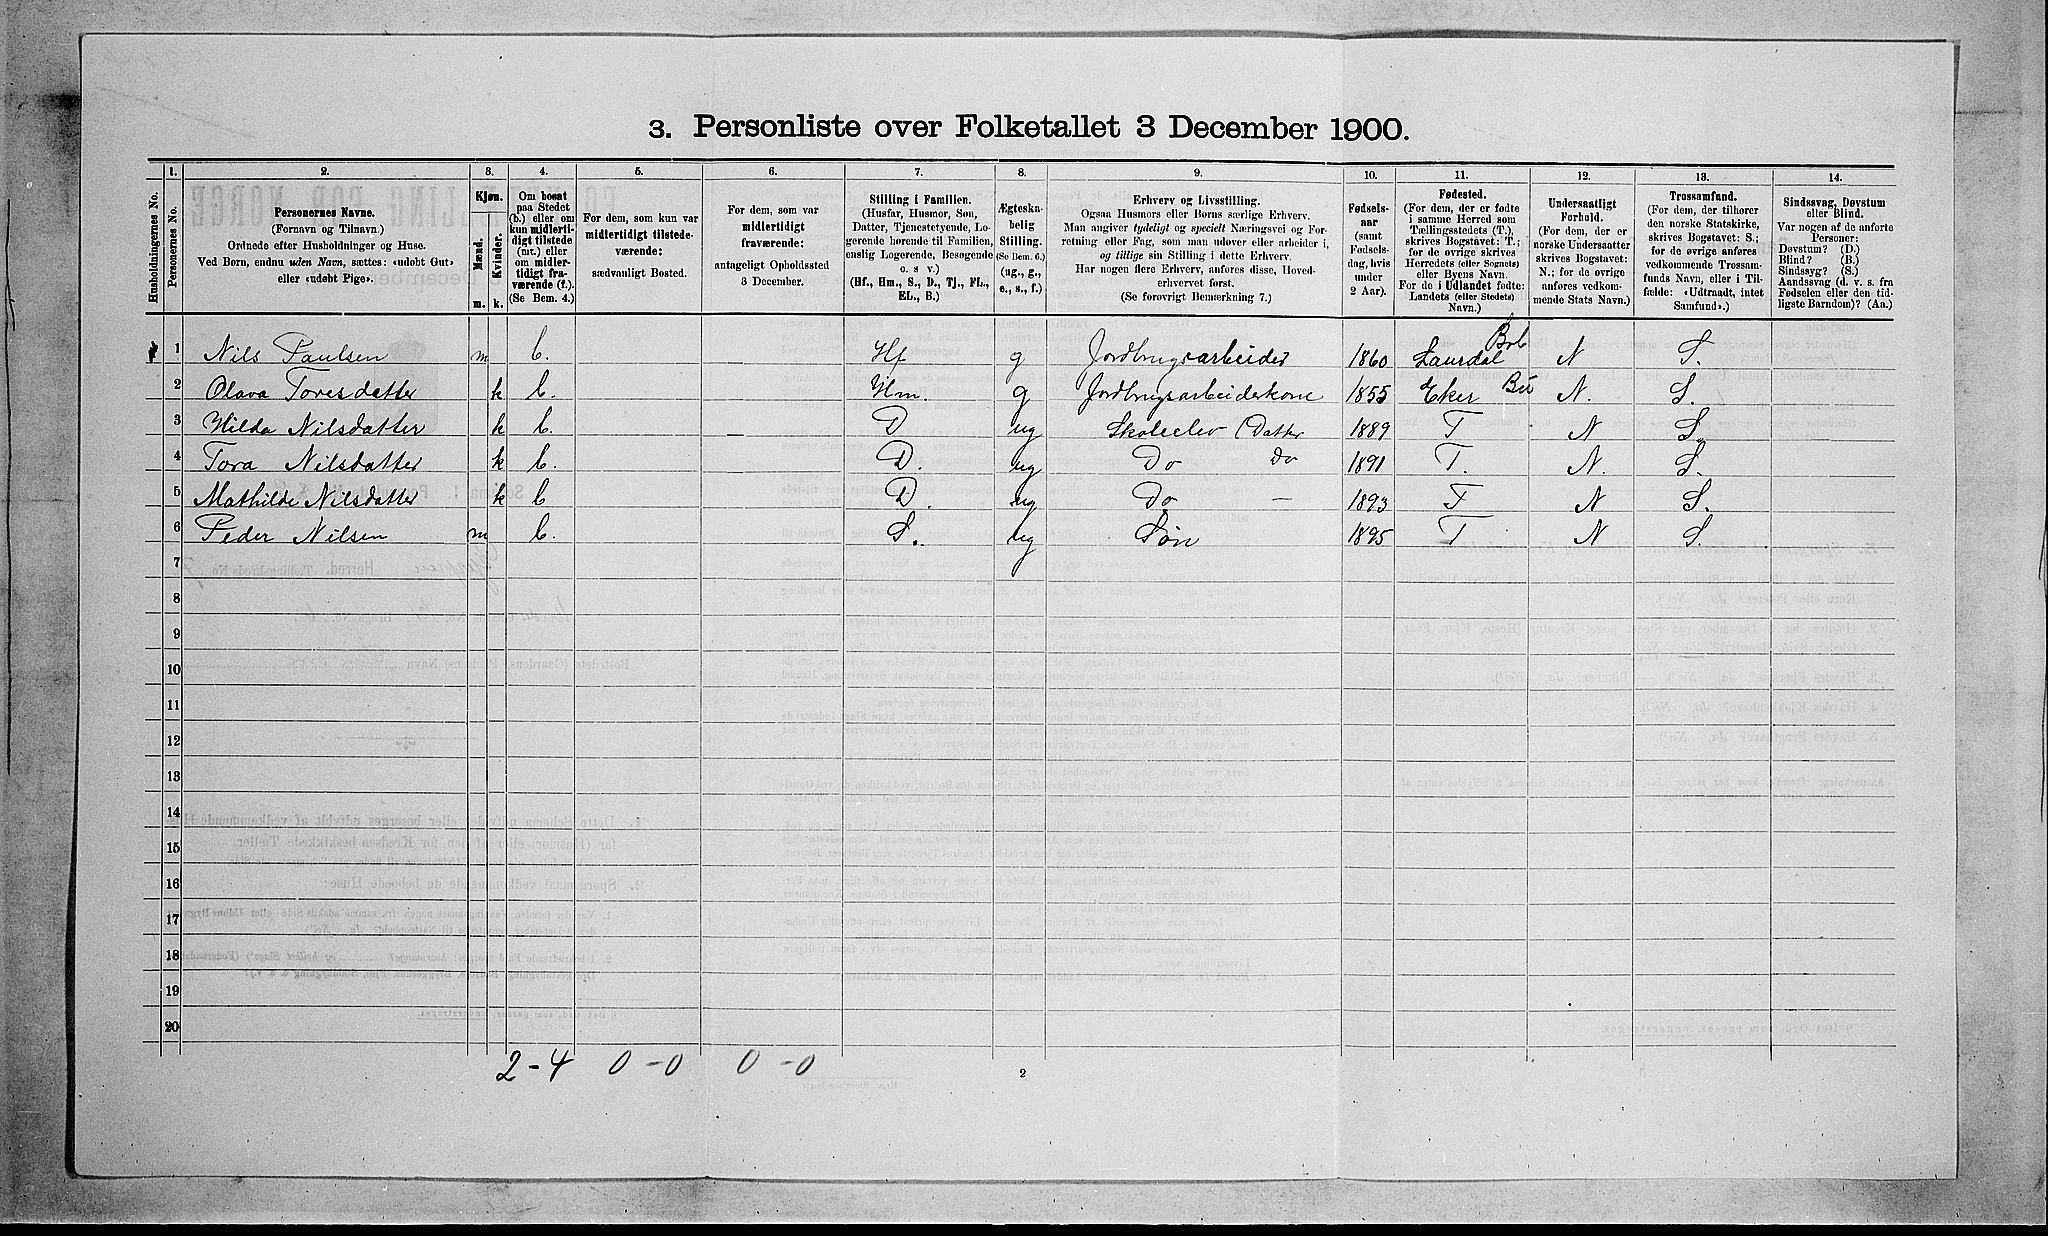 3. Personliste over Folketallet 3 December 1900.
Husholdningernes No.
1.
Personernes No.
2.
Personernes Navne.
(Fornavn og Tilnavn.)
Ordnede efter Husholdninger og Huse.
Ved Børn, endnu uden Navn, sættes: «udøbt Gut»
eller «udøbt Pige».
3.
Kjøn.
Mænd.
Kvinder.
m. k.
4.
Om bosat
paa Stedet
(b.) eller om
kun midlerti-
digt tilstede
(mt.) eller
om midler-
tidigt fra-
værende (f.).
(Se Bem. 4.)
5.
For dem, som kun var
midlertidigt tilstede-
værende:
sædvanligt Bosted.
6.
For dem, som var
midlertidigt
fraværende:
antageligt Opholdssted
3 December.
7.
Stilling i Familien.
(Husfar, Husmor, Søn,
Datter, Tjenestetyende, Lo-
gerende hørende til Familien,
enslig Logerende, Besøgende
o. s v.)
(Hf., Hm., S., D., Tj., FL.,
EL., B.)
8.
Ægteska-
belig
Stilling.
(Se Bem. 6.)
(ug., g.,
e., s., f.)
9.
Erhverv og Livsstilling.
Ogsaa Husmors eller Børns særlige Erhverv.
Man angiver tydeligt og specielt Næringsvei og For-
retning eller Fag, som man udøver eller arbeider i,
og tillige sin Stilling i dette Erhverv.
Har nogen flere Erhverv, anføres disse, Hoved-
erhvervet først.
(Se forøvrigt Bemerkning 7.)
10.
Fødsels-
aar
(samt
Fødsels-
dag, hvis
under
2 Aar).
11.
Fødested.
(For dem, der er fødte
i samme Herred som
Tællingsstedets (T.),
skrives Bogstavet: T.;
for de øvrige skrives
Herredets (eller Sognets)
eller Byens Navn.
For de i Udlandet fødte:
Landets (eller Stedets)
Navn.)
12.
Undersaatligt
Forhold.
(For dem, der er
norske Undersaatter
skrives Bogstavet:
N.; for de øvrige
anføres vedkom-
mende Stats Navn.)
13.
Trossamfund.
(For dem, der tilhører
den norske Statskirke,
skrives Bogstavet: S.;
for de øvrige anføres
vedkommende Trossam-
funds Navn, eller i Til-
fælde: «Udtraadt, intet
Samfund».)
14.
Sindssvag, Døvstum
eller Blind.
Var nogen af de anførte
Personer:
Døvstum? (D.)
Blind? (B.)
Sindssyg? (S.)
Aandssvag (d. v. s. fra
Fødselen eller den tid-
ligste Barndom)? (Aa.)
1 Nils Paulsen m b. Hf g Jordbrugsarbeider 1860 Laurdal Brb N S.
2 Olava Toresdatter k b. Hm. g Jordbrugsarbeiderkone 1855 Eker Bu N. S.
3 Hilda Nilsdatter k b. – D ug Skoleelev (Datter 1889 T N S.
4 Tora Nilsdatter k b. D. ug Do Do 1891 T. N. S.
5 Mathilde Nilsdatter k b D. ug Do – 1893 T N S.
6 Peder Nilsen m b. S. ug Søn 1895 T N S.
7
8
9
10
11
12
13
14
15
16
17
18
19
20
2-4 0-0 0-0
2